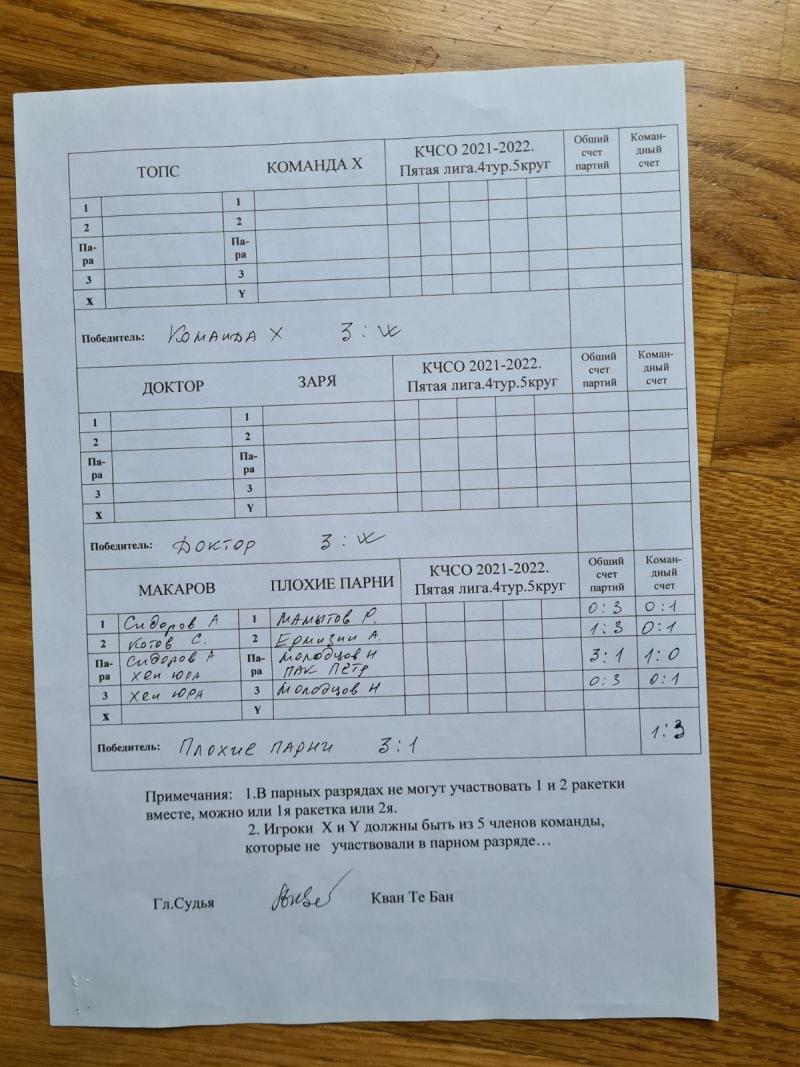 ТОПС КОМАНДА Х КЧСО 2021-2022. Пятая лига.4тур.5круг Общий счет партий Коман-дный счет
1 1
2 2
Па-ра Па-ра
3 3
X Y
Победитель: Команда Х 3 : Ж
ДОКТОР ЗАРЯ КЧСО 2021-2022. Пятая лига.4тур.5круг Общий счет партий Коман-дный счет
1 1
2 2
Па-ра Па-ра
3 3
X Y
Победитель: Доктор 3 : Ж
МАКАРОВ ПЛОХИЕ ПАРНИ КЧСО 2021-2022. Пятая лига.4тур.5круг Общий счет партий Коман-дный счет
1 Сидоров А 1 Мамытов Р. 0:3 0:1
2 Котов С. 2 Ермизин А. 1:3 0:1
Па-ра Сидоров А Хен Юра Па-ра Молодцов Н Пак Пётр 3:1 1:0
3 Хен Юра 3 Молодцов Н 0:3 0:1
X Y
Победитель: Плохие парни 3:1 1:3
Примечания: 1.В парных разрядах не могут участвовать 1 и 2 ракетки
вместе, можно или 1я ракетка или 2я.
2. Игроки X и Y должны быть из 5 членов команды,
которые не участвовали в парном разряде…
Гл.Судья Кван Те Бан